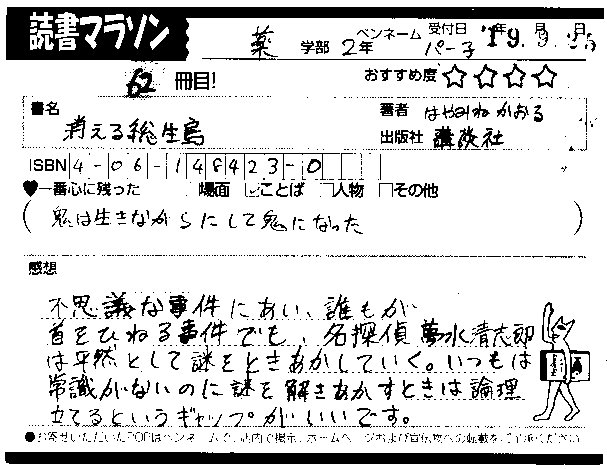 読書マラソン
薬 学部 2年 ペンネーム パー子 受付日 '19年 9月 25日
62 冊目! おすすめ度 ☆☆☆☆
書名 消える総生島
著者 はやみねかおる
出版社 講談社
ISBN 4-06-148423-0
♥一番心に残った □場面 ☑ことば □人物 □その他
(鬼は生きながらにして鬼になった)
感想
不思議な事件にあい、誰もが
首をひねる事件でも、名探偵夢水清志郎
は平然として謎をときあかしていく。いつもは
常識がないのに謎を解きあかすときは論理
立てるというギャップがいいです。
●お寄せいただいたPOPはペンネームで、店内で掲示、ホームページおよび宣伝物への転載をご了承ください